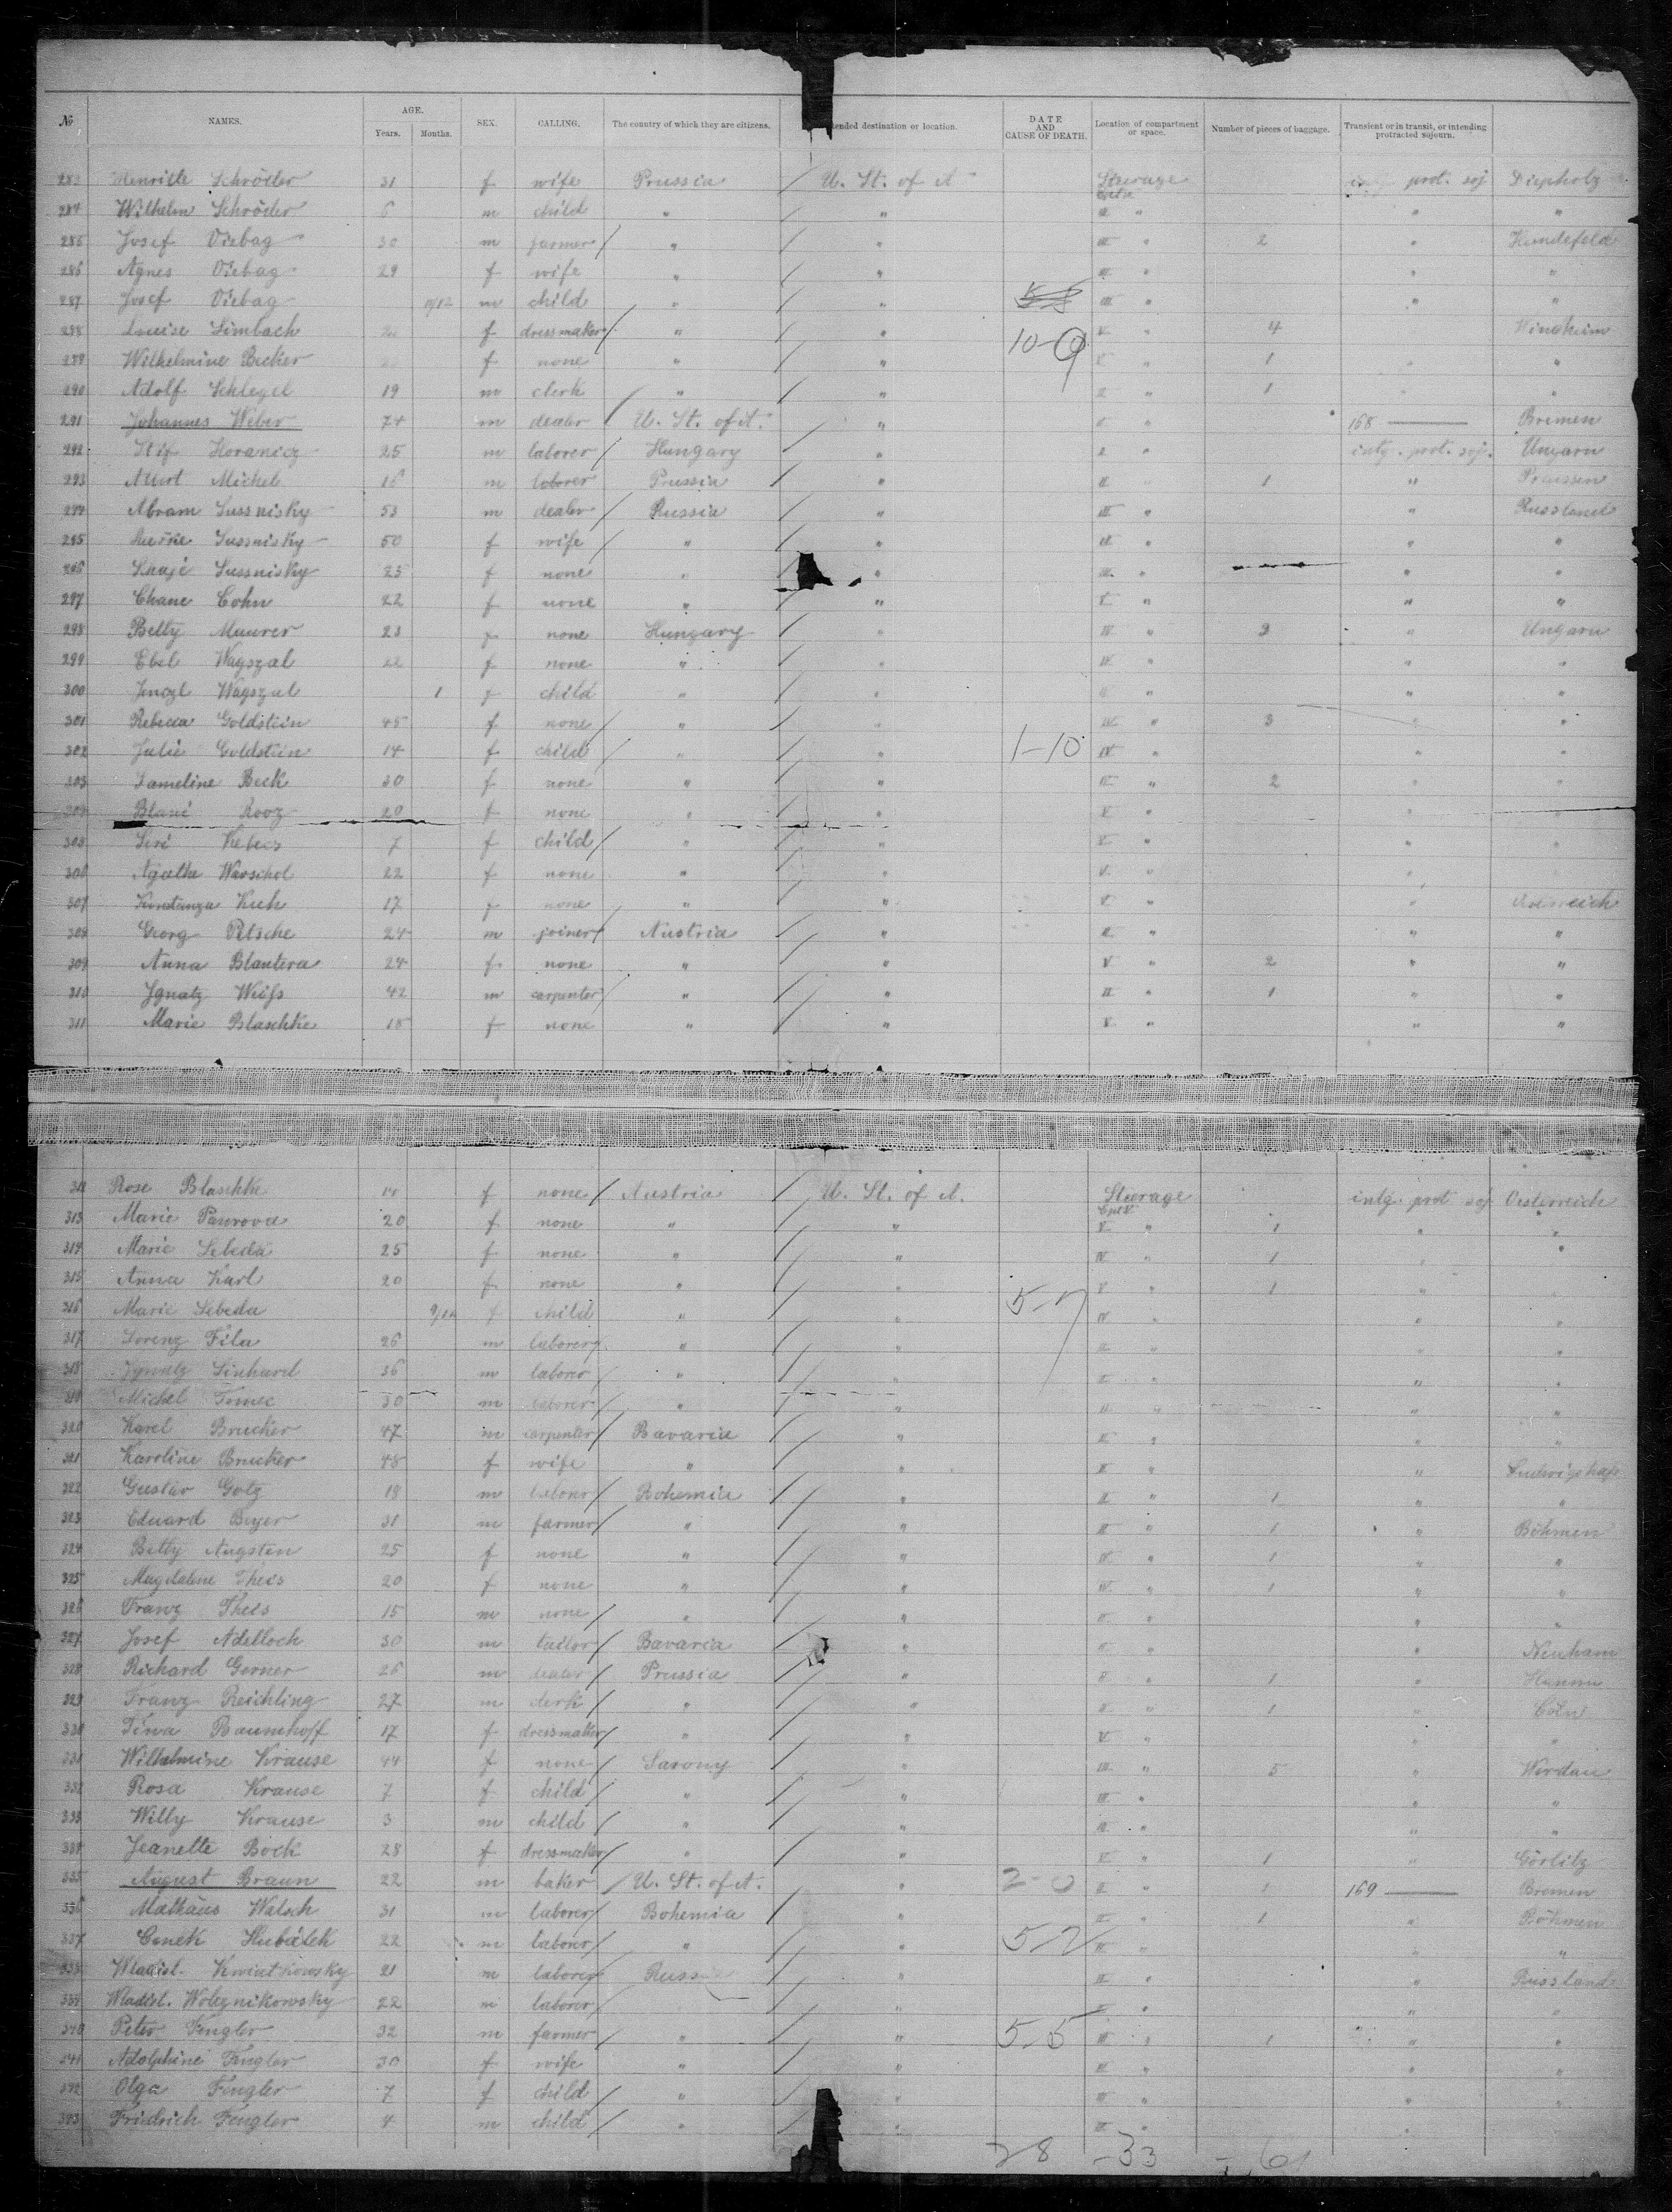 № NAMES. AGE. Years. Months. SEX. CALLING. The country of which they are citizens. ended destination or location. DATE AND CAUSE OF DEATH. Location of compartment or space. Number of pieces of baggage. Transient or in transit, or intending protracted sojourn.
283 Schröder 31 f wife Prussia U. St. of A Steerage prot. soj Diepholz
284 Wilhelm Schröder 6 m child " " " " "
285 Josef Viebag 30 m farmer " " III " 2 " Hundefeld
286 Agnes Viebag 29 f wife " " III " " "
287 Josef Viebag m child " " III " " "
288 Louise Limbach f dressmaker " " 10-9 V " 4
289 Wilhelmine Becker f none " " V " 1 " "
290 Adolf Schlegel 19 m clerk " " II " 1 " "
291 Johannes Weber 74 m dealer U. St. of A. " " 168 Bremen
292 25 m laborer Hungary " II " intg. prot. soj. Ungarn
293 Michel 16 m laborer Prussia " II " 1 " Preussen
294 Abram Sussnisky 53 m dealer Russia " III " " Russland
295 Sussnisky 50 f wife " " III " " "
296 Sussnisky 25 f none " " III " " "
297 Chane Cohn 22 f none " " V " " "
298 Betty Maurer 23 f none Hungary " IV " " Ungarn
299 Wagszal 22 f none " " IV " " "
300 Wagszal 1 f child " " " " "
301 Rebecca Goldstein 45 f none " " IV " 3 " "
302 Julie Goldstein 14 f child " " 1-10 IV " " "
303 Beck 30 f none " " IV " 2 " "
304 Rooz f none " " V " " "
305 7 f child " " V " " "
306 Agathe 22 f none " " V " "
307 17 f none " " V " "
308 Georg Petsche 24 m joiner Austria " II " " "
309 Anna Blantera 24 f none " " V " 2 " "
310 Ignatz Weiſs 42 m carpenter " " II " 1 " "
311 Marie Blaschke 18 f none " " V " " "
Rose Blaschke f none Austria U. St. of A. Steerage intg. prot soj Oesterreich
313 Marie 20 f none " " V " 1 " "
314 Marie Lebeda 25 f none " " IV " 1 " "
315 Anna Karl 20 f none " " V " 1 "
316 Marie Lebeda f child " " 5-7 IV " " "
317 Lorenz Fila 26 m laborer " " II " " "
318 Linhard 36 m laborer " " " " "
Michel Tomec 30 m laborer " " II " " "
320 Karel Brucker 47 m carpenter Bavaria " II " " "
321 Karoline Brucker 45 f wife " " II " "
322 Gustav Götz 18 m laborer Bohemia " II " 1 " "
323 Eduard Beyer 31 m farmer " " II " 1 " Böhmen
324 Betty Augsten 25 f none " " IV " 1 " "
325 Magdalene Theis 20 f none " " IV " 1 " "
326 Franz Theis 15 m none " " " " "
327 Josef Adelloch 30 m tailor Bavaria " " "
328 Richard Gerner 26 m dealer Prussia " II " 1 "
329 Franz Reichling 27 m clerk " " II " 1 " Cöln
330 Baumhoff 17 f dressmaker " " V " " "
331 Wilhelmine Krause 44 f none Saxony " III " 5 " Werdau
332 Rosa Krause 7 f child " " III " " "
333 Willy Krause 3 m child " " III " " "
334 Jeanette Bock 28 f dressmaker " " V " 1 " Görlitz
335 August Braun 22 m baker U. St. of A. " 2-0 II " 1 169 Bremen
336 Mathäus Watsch 31 m laborer Bohemia " II " 1 " Böhmen
337 Cenek Hubálek 22 m laborer " " 5-2 II " " "
338 Wladisl. Kwiatkowsky 21 m laborer Russia " II " " Russland
339 Wladisl. 22 m laborer " " " "
340 Peter Fengler 32 m farmer " " 5-5 III " 1 " "
341 Adolphine Fengler 30 f wife " " III " " "
342 Olga Fengler 7 f child " " III " " "
343 Friedrich Fengler 4 m child " " III "
28 -33 - 61